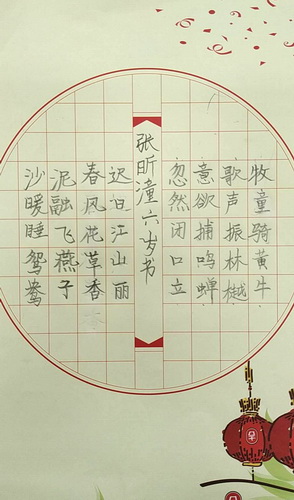 牧童骑黄牛
歌声振林樾
意欲捕鸣蝉
忽然闭口立
张昕潼六岁书
迟日江山丽
春风花草香
泥融飞燕子
沙暖睡鸳鸯